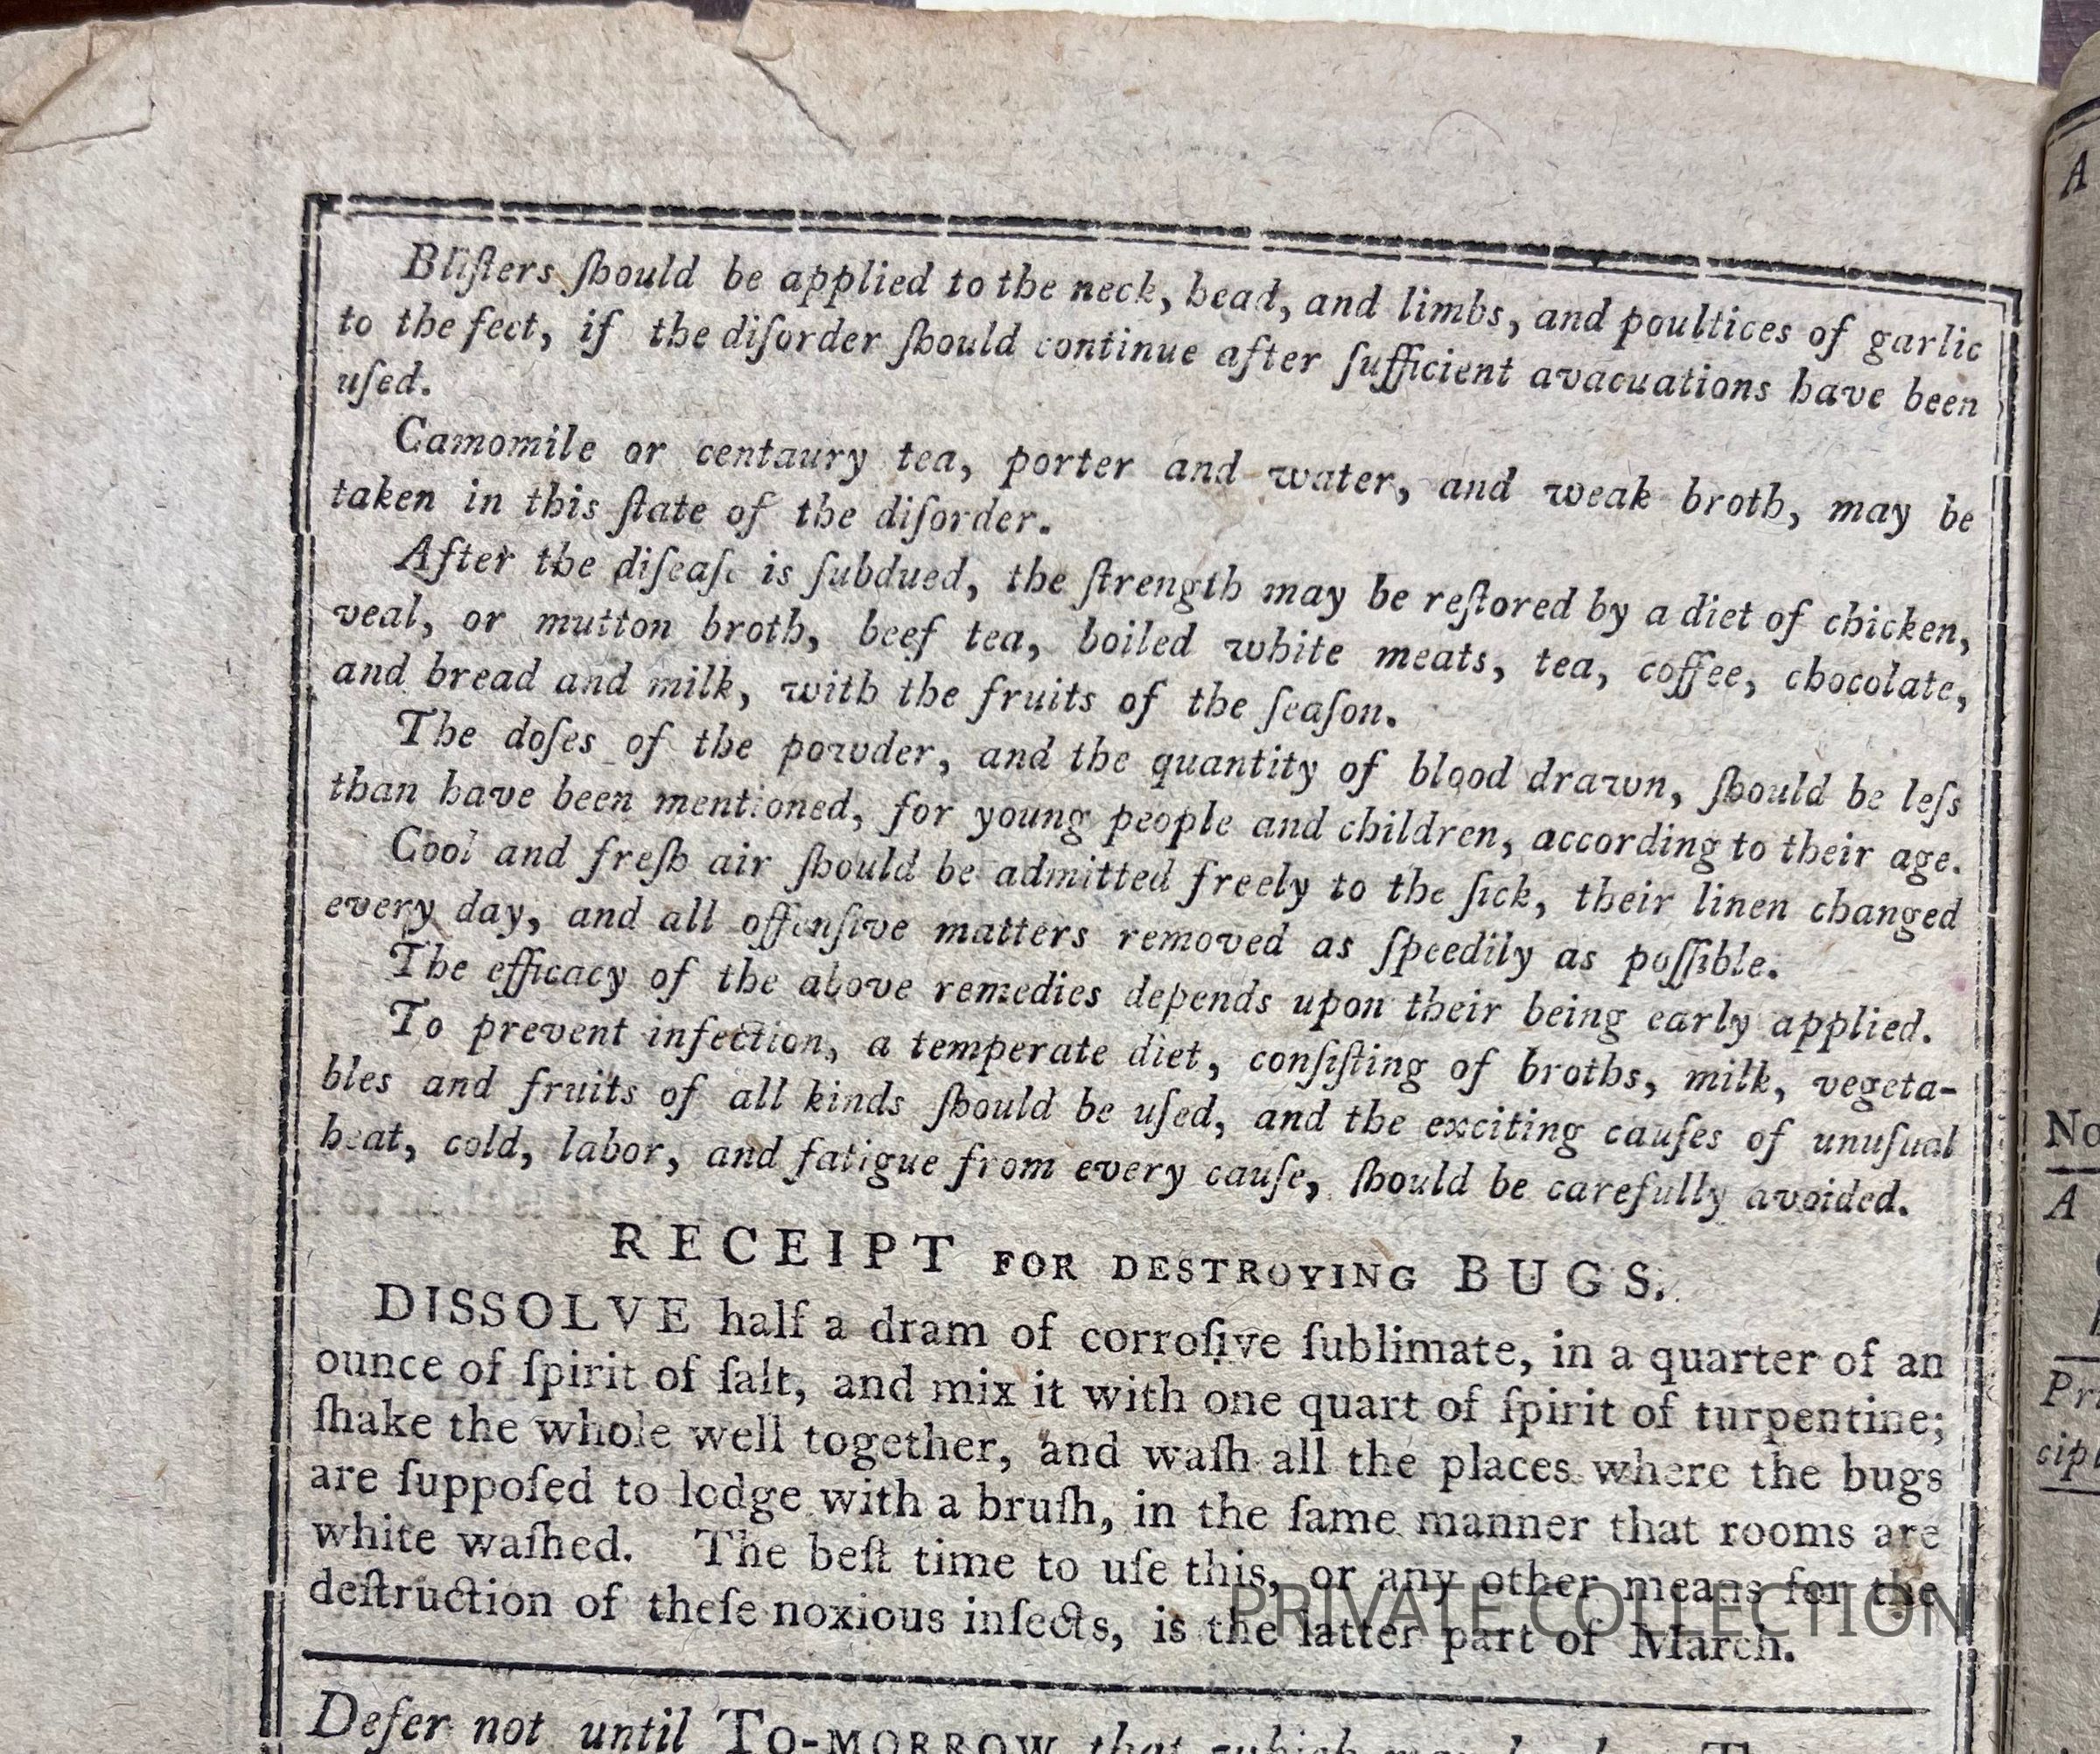 Bliſters ſhould be applied to the neck, head, and limbs, and poultices of garlic
to the feet, if the diſorder ſhould continue after ſufficient avacuations have been
uſed.
Camomile or centaury tea, porter and water, and weak broth, may be
taken in this ſtate of the diſorder.
After the diſeaſe is ſubdued, the ſtrength may be reſtored by a diet of chicken,
veal, or mutton broth, beef tea, boiled white meats, tea, coffee, chocolate,
and bread and milk, with the fruits of the ſeaſon.
The doſes of the powder, and the quantity of blood drawn, ſhould be leſs
than have been mentioned, for young people and children, according to their age.
Cool and freſh air ſhould be admitted freely to the ſick, their linen changed
every day, and all offenſive matters removed as ſpeedily as poſſible.
The efficacy of the above remedies depends upon their being early applied.
To prevent infection, a temperate diet, conſiſting of broths, milk, vegeta-
bles and fruits of all kinds ſhould be uſed, and the exciting cauſes of unuſual
heat, cold, labor, and fatigue from every cauſe, ſhould be carefully avoided.
RECEIPT FOR DESTROYING BUGS.
DISSOLVE half a dram of corroſive ſublimate, in a quarter of an
ounce of ſpirit of ſalt, and mix it with one quart of ſpirit of turpentine;
ſhake the whole well together, and waſh all the places where the bugs
are ſuppoſed to lodge with a bruſh, in the ſame manner that rooms are
white waſhed. The beſt time to uſe this, or any other means for the
deſtruction of theſe noxious inſects, is the latter part of March.
PRIVATE COLLECTION
Defer not until TO-MORROW that which may
A
No
A
Pri
cip